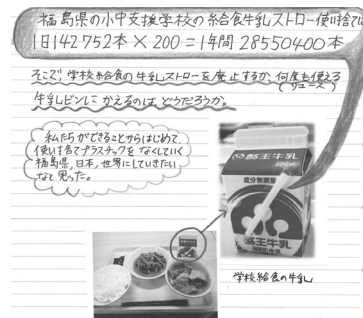 福島県の小中支援学校の給食牛乳ストロー使捨ては
1日142752本×200＝1年間28550400本
そこで、学校給食の牛乳ストローを廃止するか、何度も使える
（リユース）
牛乳ビンにかえるのは、どうだろうか。
私たちができることからはじめて、
使い捨てプラスチックをなくしていく
福島県、日本、世界にしていきたい
なと思った。
酪王牛乳
200ml
成分無調整
酪王牛乳
学校給食の牛乳